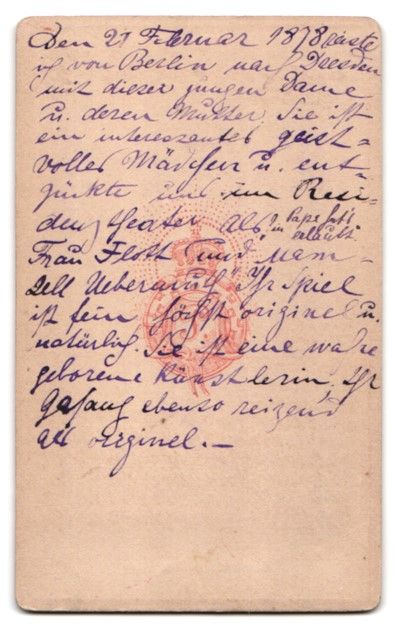 Den 21 Februar 1878 reiste
ich von Berlin nach Dresden
mit dieser jungen Dame
u. deren Mutter. Sie ist
ein interessantes geist-
volles Mädchen u. ent-
zückte uns im Resi-
denztheater als in Papa hat's erlaubt
Frau Flott und Mam-
zell Uebermuth Ihr Spiel
ist fein höchst originel u.
natürlich. Sie ist eine wahre
geborene Künstlerin, Ihr
Gesang ebenso reizend
als originel. —